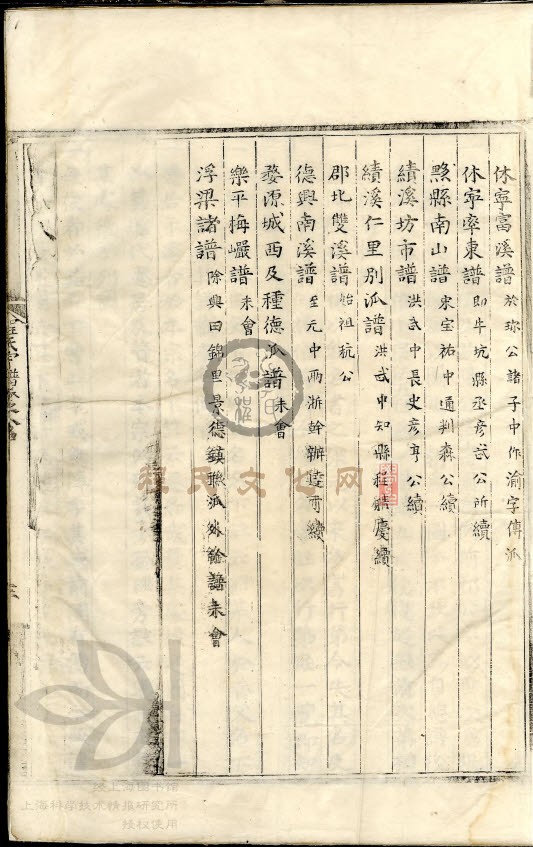 休寧富溪譜 於珍公諸子中作渝字傳派
休寧率東譜 即牛坑縣丞彦武公所續
黟縣南山譜 宋宝祐中通判森公續
績溪坊市譜 洪武中長史彦亨公續
績溪仁里別派譜 洪武中知縣程 慶續
郡北雙溪譜 始祖 公
德興南溪譜 至元中兩浙幹辦 續
婺源城西及種德派譜 未會
樂平梅巗譜 未會
浮梁諸譜 除興田錦里景德鎮 派外餘譜未會
程氏文化网
授上海图书馆
上海科学技术情报研究所
授权使用